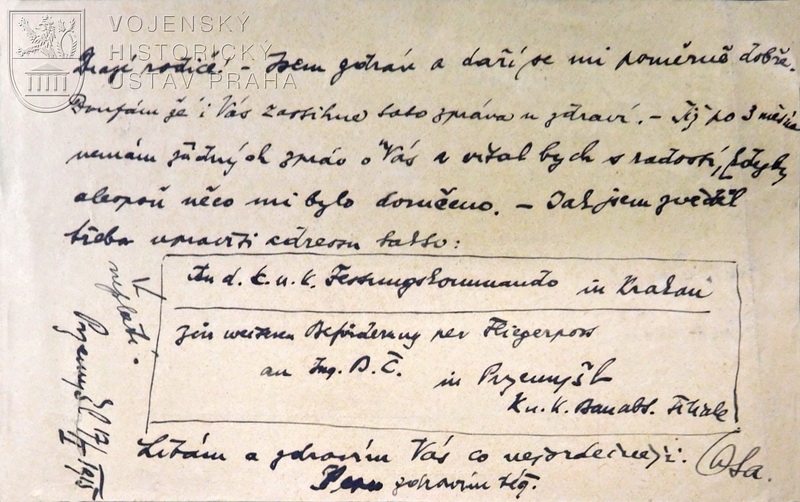 VOJENSKÝ
HISTORICKÝ
ÚSTAV PRAHA
Drazí rodiče! – Jsem zdráv a daří se mi poměrně dobře.
Doufám že i Vás zastihne tato zpráva u zdraví. – Již po 3 měsíce
nemám žádných zpráv o Vás a vítal bych s radostí, kdyby
alespoň něco mi bylo doručeno. – Jak jsem zvěděl
třeba upraviti adresu takto:
An d. k. u. k. Festungskommando in Krakau
zur weiteren Beförderung per Fliegerpost
an Ing. B. Č. in Przemyśl
K. u. K. Bauabt. Filiale
Líbám a zdravím Vás co nejsrdečněji.
zdravím též.
neplatí.
Przemyśl 17/II 1915